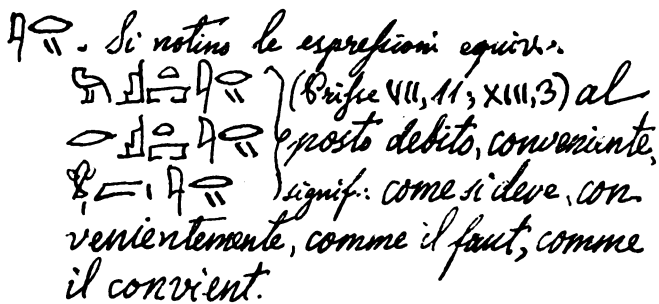 𓇋𓂋𓏭. Si notino le espressioni equiv.:
𓅓𓊨𓏏𓉐𓇋𓂋𓏭 (Prisse VII, 11; XIII, 3) al
𓂋𓊨𓏏𓉐𓇋𓂋𓏭 posto debito, conveniente,
𓇋𓂋𓏭 signif.: come si deve, con
venientemente, comme il faut, comme
il convient.